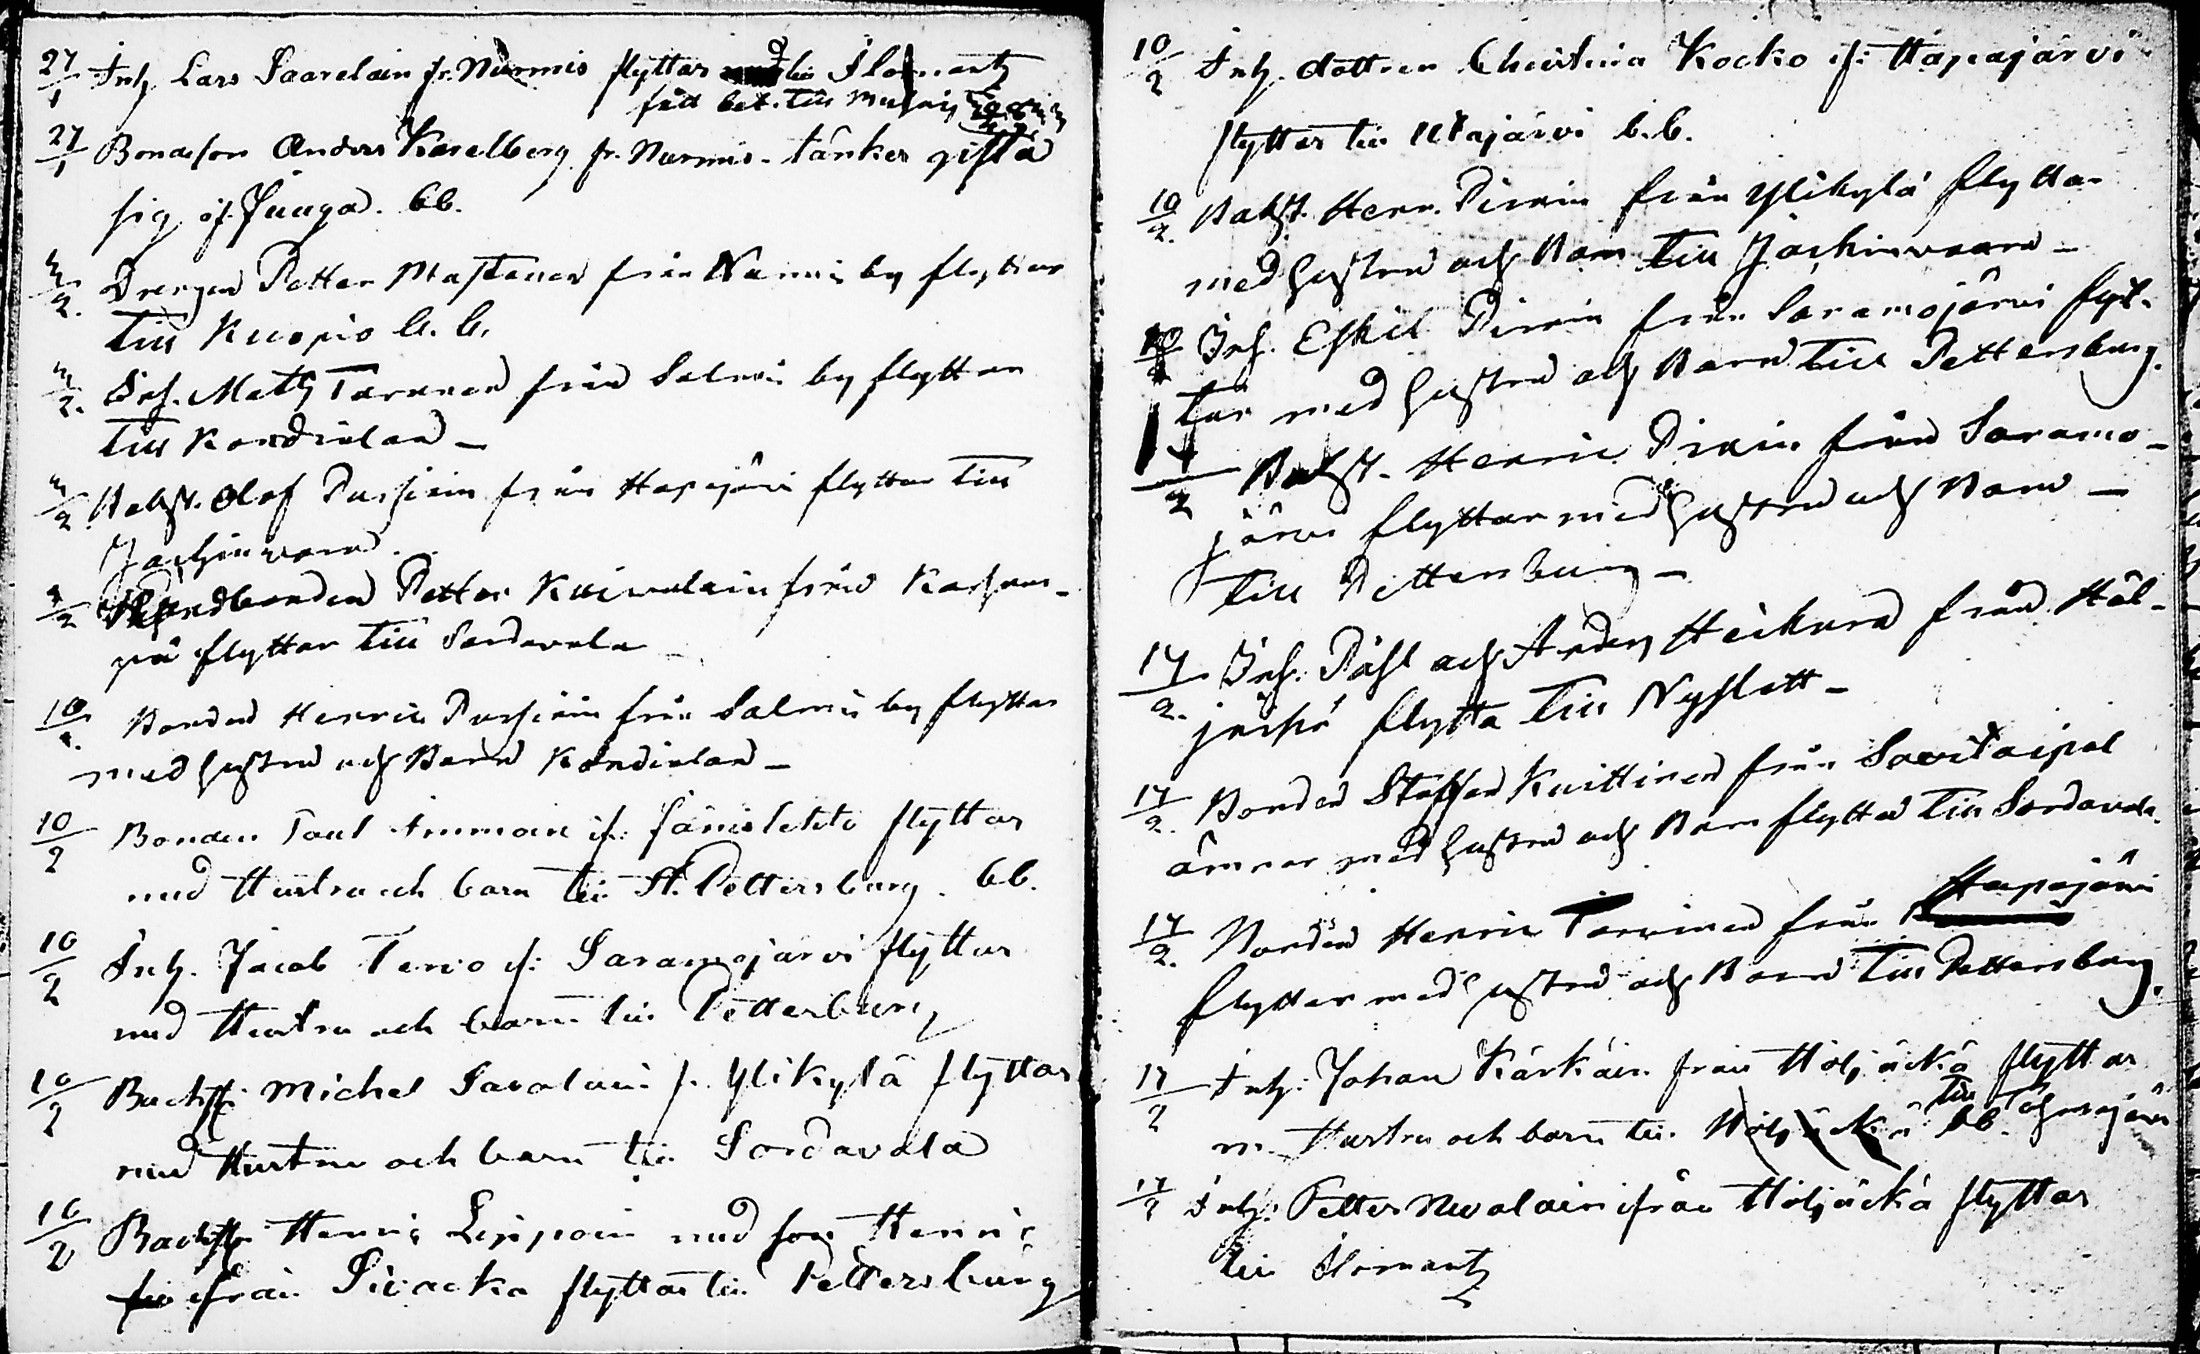 27/1 Inh. Lars Saarelain fr. Nurmis flyttar till Ilomantz
fått bet. till
27/1 Bondeson Anders Karelberg fr. Nurmis - tänker gifta
sig if. Juuga. bb.
3/2. Drengen Petter Mustonen från Nurmis by flyttar
till Kuopio b. b.
3/2. Inh. Matts Tarunen från Salmis by flyttar
till Kondiolax –
3/2 Bakst. Olof Pursiain från Hapajärvi flyttar till
Jackimvara.
3/2 Landbonden Petter Kuivalain från Karhun-
pä flyttar till Sordavala
10/2. Bonden Henric Pursiain från Salmis by flyttar
med hustru och Barn Kondiolax –
10/2 Bonden Paul Immoin if. Jänislehto flyttar
med Hustru och barn till St. Pettersburg. bb.
10/2 Inh. Jacob Tervo if. Saramojärvi flyttar
med Hustru och barn till Petterburg
10/2 Backst. Michel Savolain fr. Ylikylä flyttar
med Hustru och barn till Sordavala
10/2 Backst. Henric Leppoin med son Henric
från Sivacka flyttar till Pettersburg
10/2 Inh. dottren Christina Kocko if. Hapajärvi
flyttar till Utajärvi b.b.
10/2. Bakst. Henr. Piirain från Ylikylä flyttar
med hustru och Barn till Jackimvaara –
10/2 Inh. Eskil Piirain från Saramojärvi flyt-
tar med hustru och Barn till Pettersburg.
17/2 Bakst. Henric Pirain från Saramo-
järvi flyttar med hustru och Barn –
till Pettersburg –
17/2. Inh. Påhl och Anders Heikura från Höl-
jäckä flytta till Nyslott –
17/2. Bonden Staffan Kuittinen från Savitaipal
ämnar med hustru och Barn flytta till Sordavala.
17/2. Bonden Henric Tarvinen från Hapajärvi
flyttar med hustru och Barn till Pettersburg.
17/2 Inh. Johan Kärkäin från Höljäckä flyttar
m. Hustru och barn till Höljäckä bb. till Tohmajärvi
17/2 Inh. Petter Nevalain ifrån Höljäckä flyttar
till Ilomantz